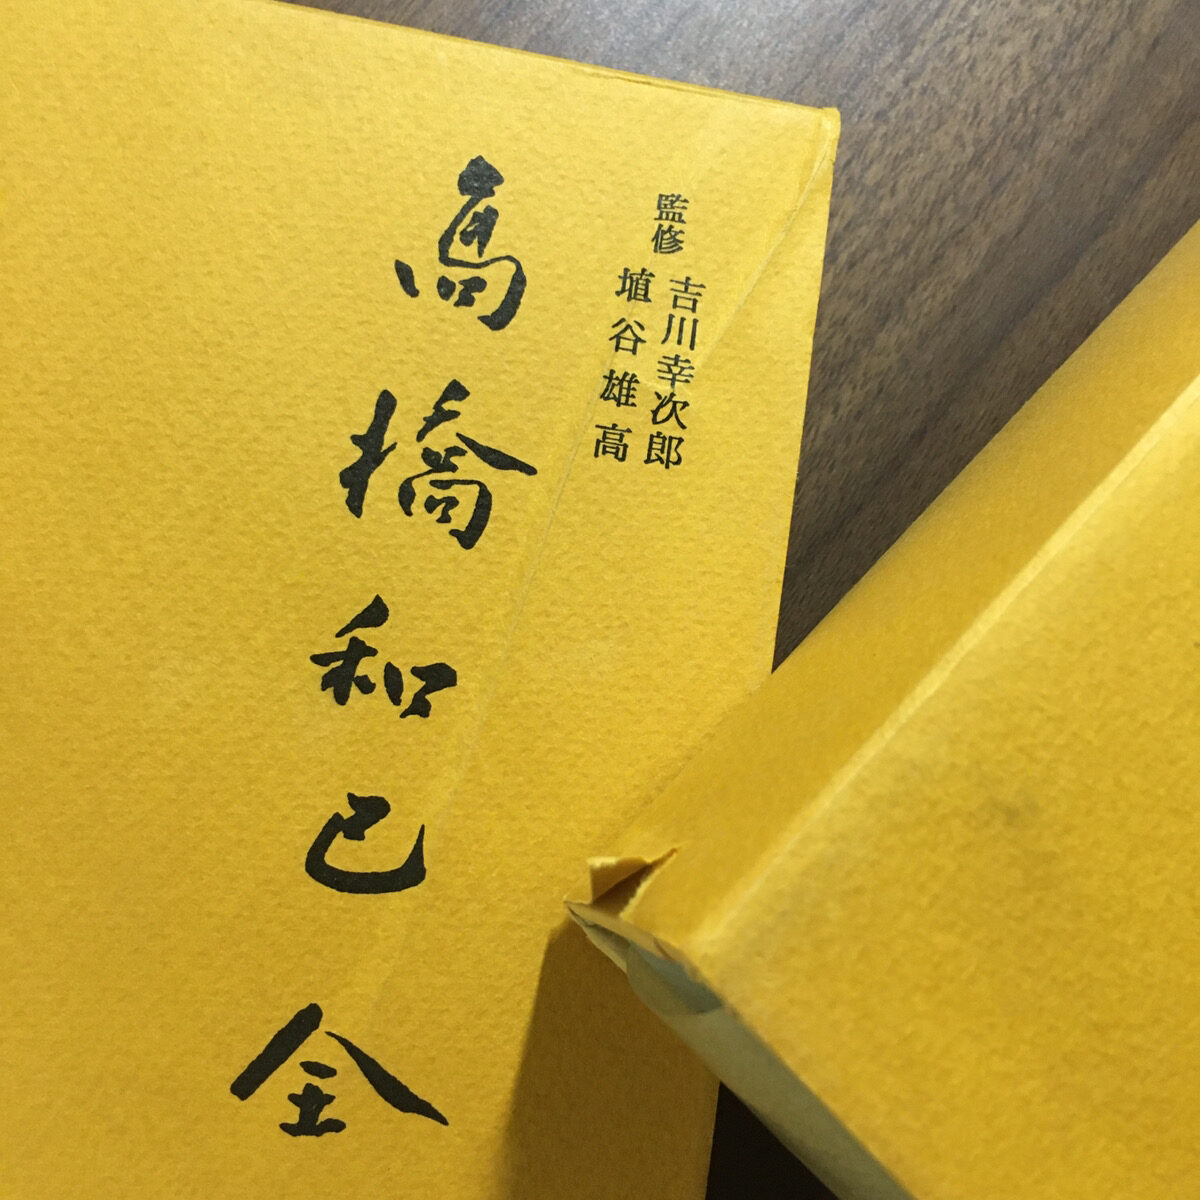 監修 吉川幸次郎
埴谷雄高
高橋和巳全